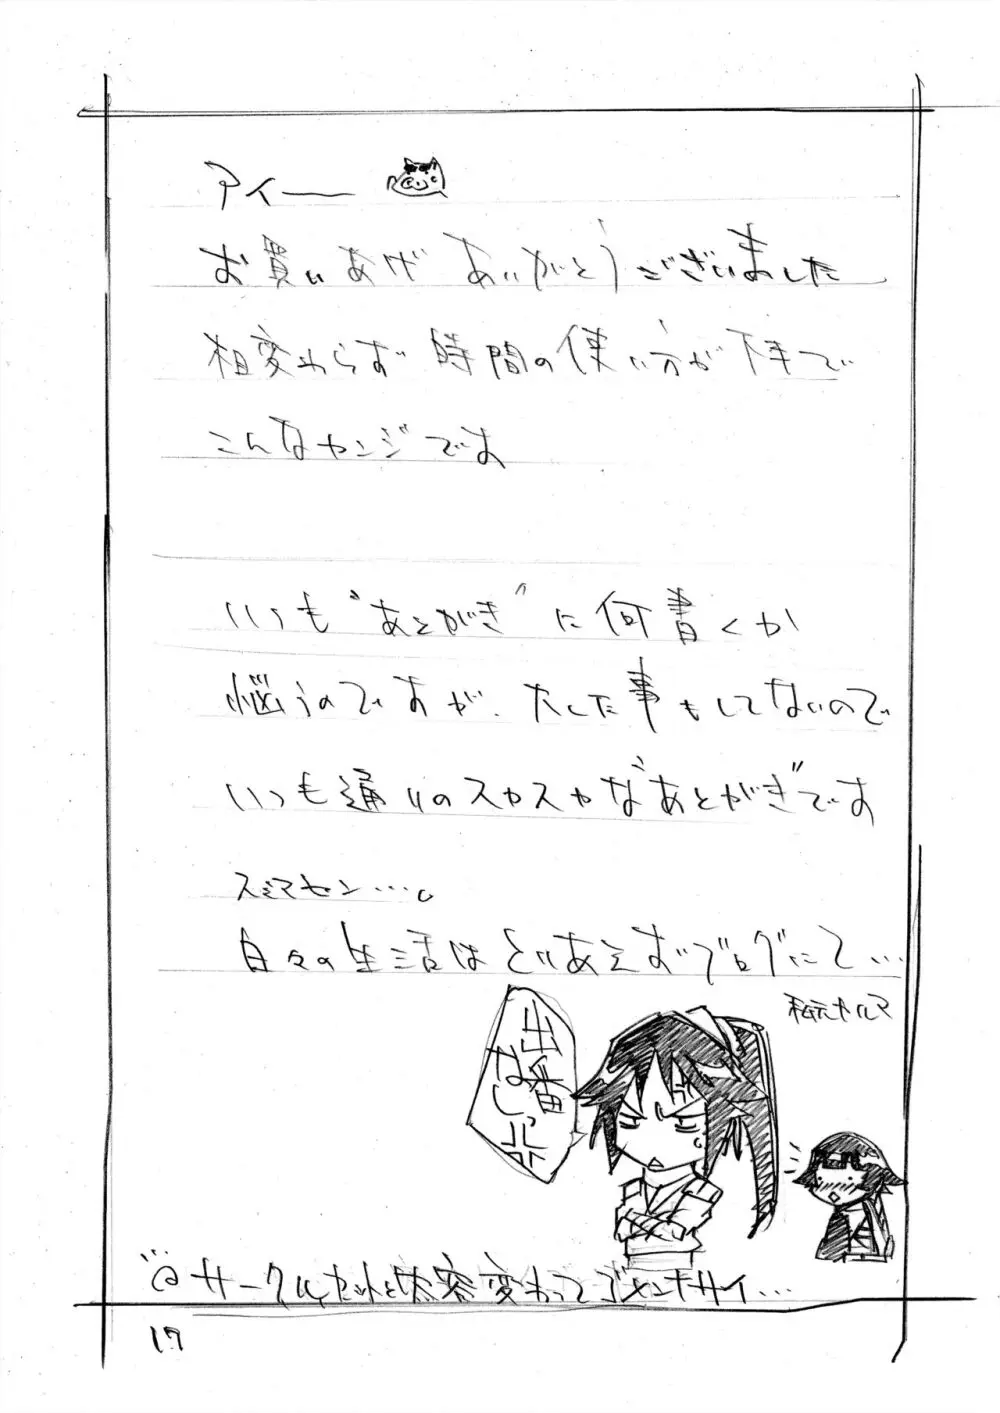 アイ――
お買いあげ ありがとうございました
相変わらず 時間の使い方が下手で
こんなカンジです
いつも“あとがき”に何書くか
悩うのですが、大した事もしてないので
いつも通りのスカスカな“あとがき”です
スミマセン…。
日々の生活はとりあえずブログにて…
出番
なしっ
サークルカットと内容変わってゴメンナサイ…
17